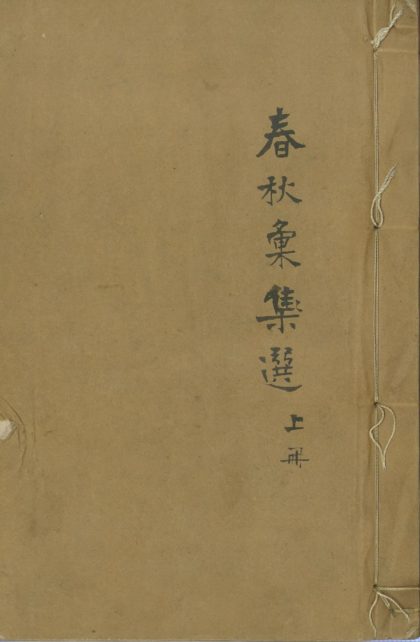 春秋彙集選
上冊